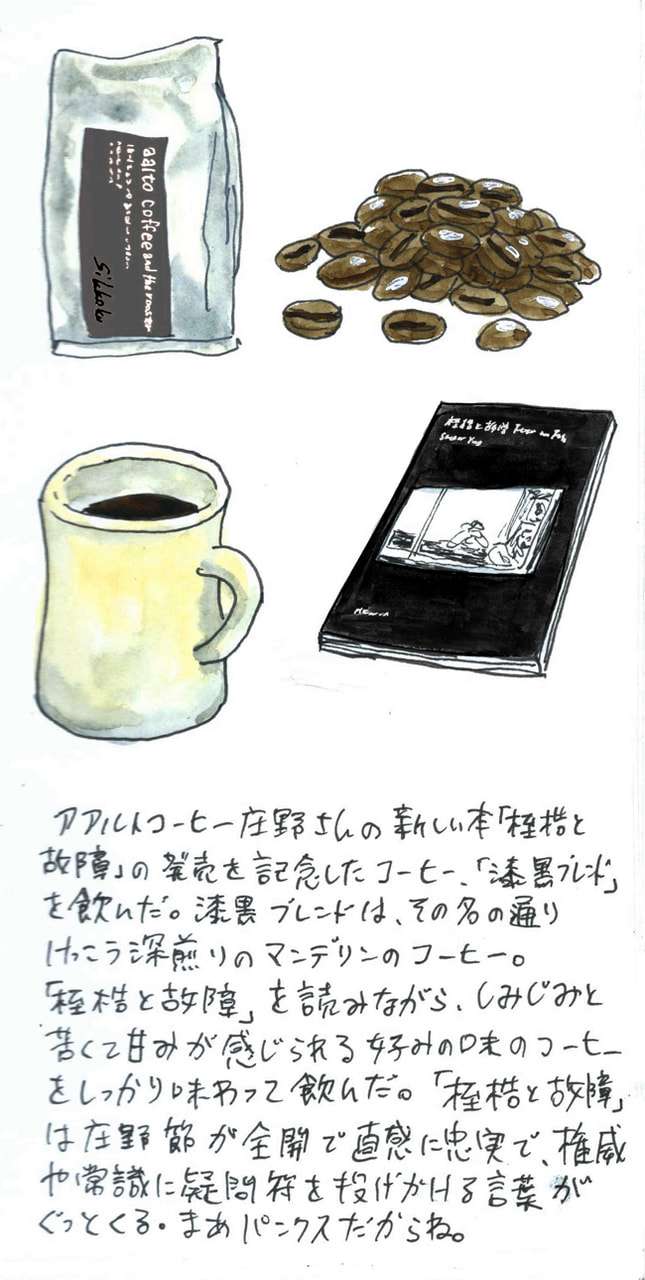 aalto coffee and the rooster
Sikkoku
桎梏と故障
アアルトコーヒー庄野さんの新しい本「桎梏と
故障」の発売を記念したコーヒー、「漆黒ブレンド」
を飲んだ。漆黒ブレンドは、その名の通り
けっこう深煎りのマンデリンのコーヒー。
「桎梏と故障」を読みながら、しみじみと
苦くて甘みが感じられる好みの味のコーヒー
をしっかり味わって飲んだ。「桎梏と故障」
は庄野節が全開で直感に忠実で、権威
や常識に疑問符を投げかける言葉が
ぐっとくる。まあパンクスだからね。